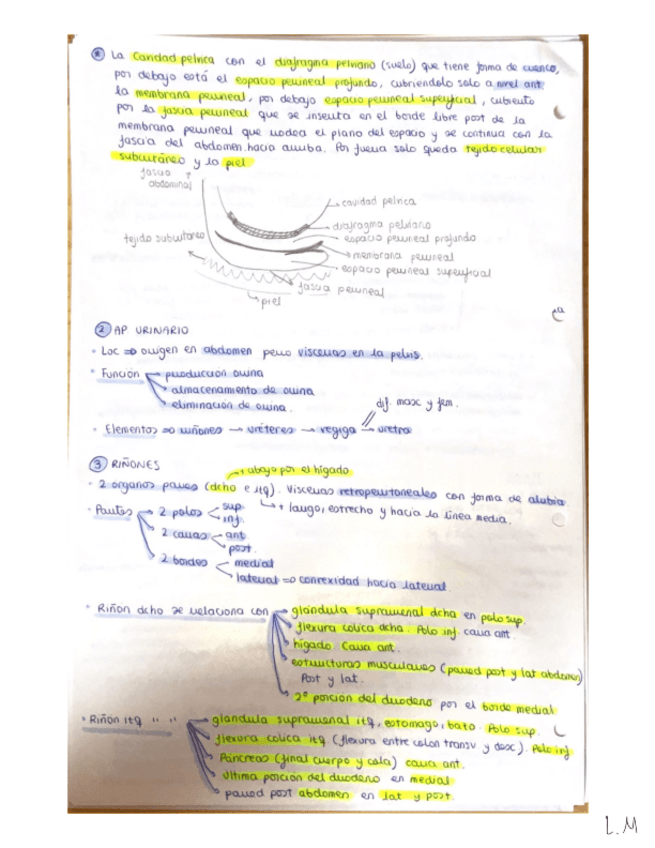 La Cavidad pelvica con el diafragma pelviano (suelo) que tiene forma de cuenco,
por debajo está el espacio perineal profundo, cubriendolo solo a nivel ant
la membrana perineal, por debajo espacio perineal superficial, cubierto
por la fascia perineal que se inserta en el borde libre post de la
membrana perineal que rodea el plano del espacio y se continua con la
fascia del abdomen hacia arriba. Por fuera solo queda tejido celular
subcutáneo y la piel
fascia ↑
abdominal
cavidad pelvica
diafragma pelviano
tejido subcutaneo
espacio perineal profundo
membrana perineal
espacio perineal superficial
fascia perineal
piel
2 AP. URINARIO
• Loc ⇒ origen en abdomen pero visceras en la pelvis.
• Función → producción orina
→ almacenamiento de orina
→ eliminación de orina.
dif. masc y fem.
• Elementos ⇒ riñones → uréteres → vejiga → uretra
3 RIÑONES
+ abajo por el hígado
• 2 organos pares (dcho e izq). Visceras retroperitoneales con forma de alubia
+ largo, estrecho y hacia la línea media.
• Partes → 2 polos < sup
inf.
→ 2 caras < ant
post.
→ 2 bordes < medial
lateral ⇒ convexidad hacia lateral.
• Riñon dcho se relaciona con → glándula suprarrenal dcha en polo sup.
flexura colica dcha. Polo inf. cara ant.
hígado. Cara ant.
estructuras musculares (pared post y lat abdomen)
Post y lat.
2ª porción del duodeno por el borde medial
• Riñon izq " " → glandula suprarrenal izq, estomago, bazo. Polo sup.
flexura colica izq (flexura entre colon transv y desc). Polo inf
Páncreas (final cuerpo y cola) cara ant.
Ultima porción del duodeno en medial
pared post abdomen en lat y post.
L.M